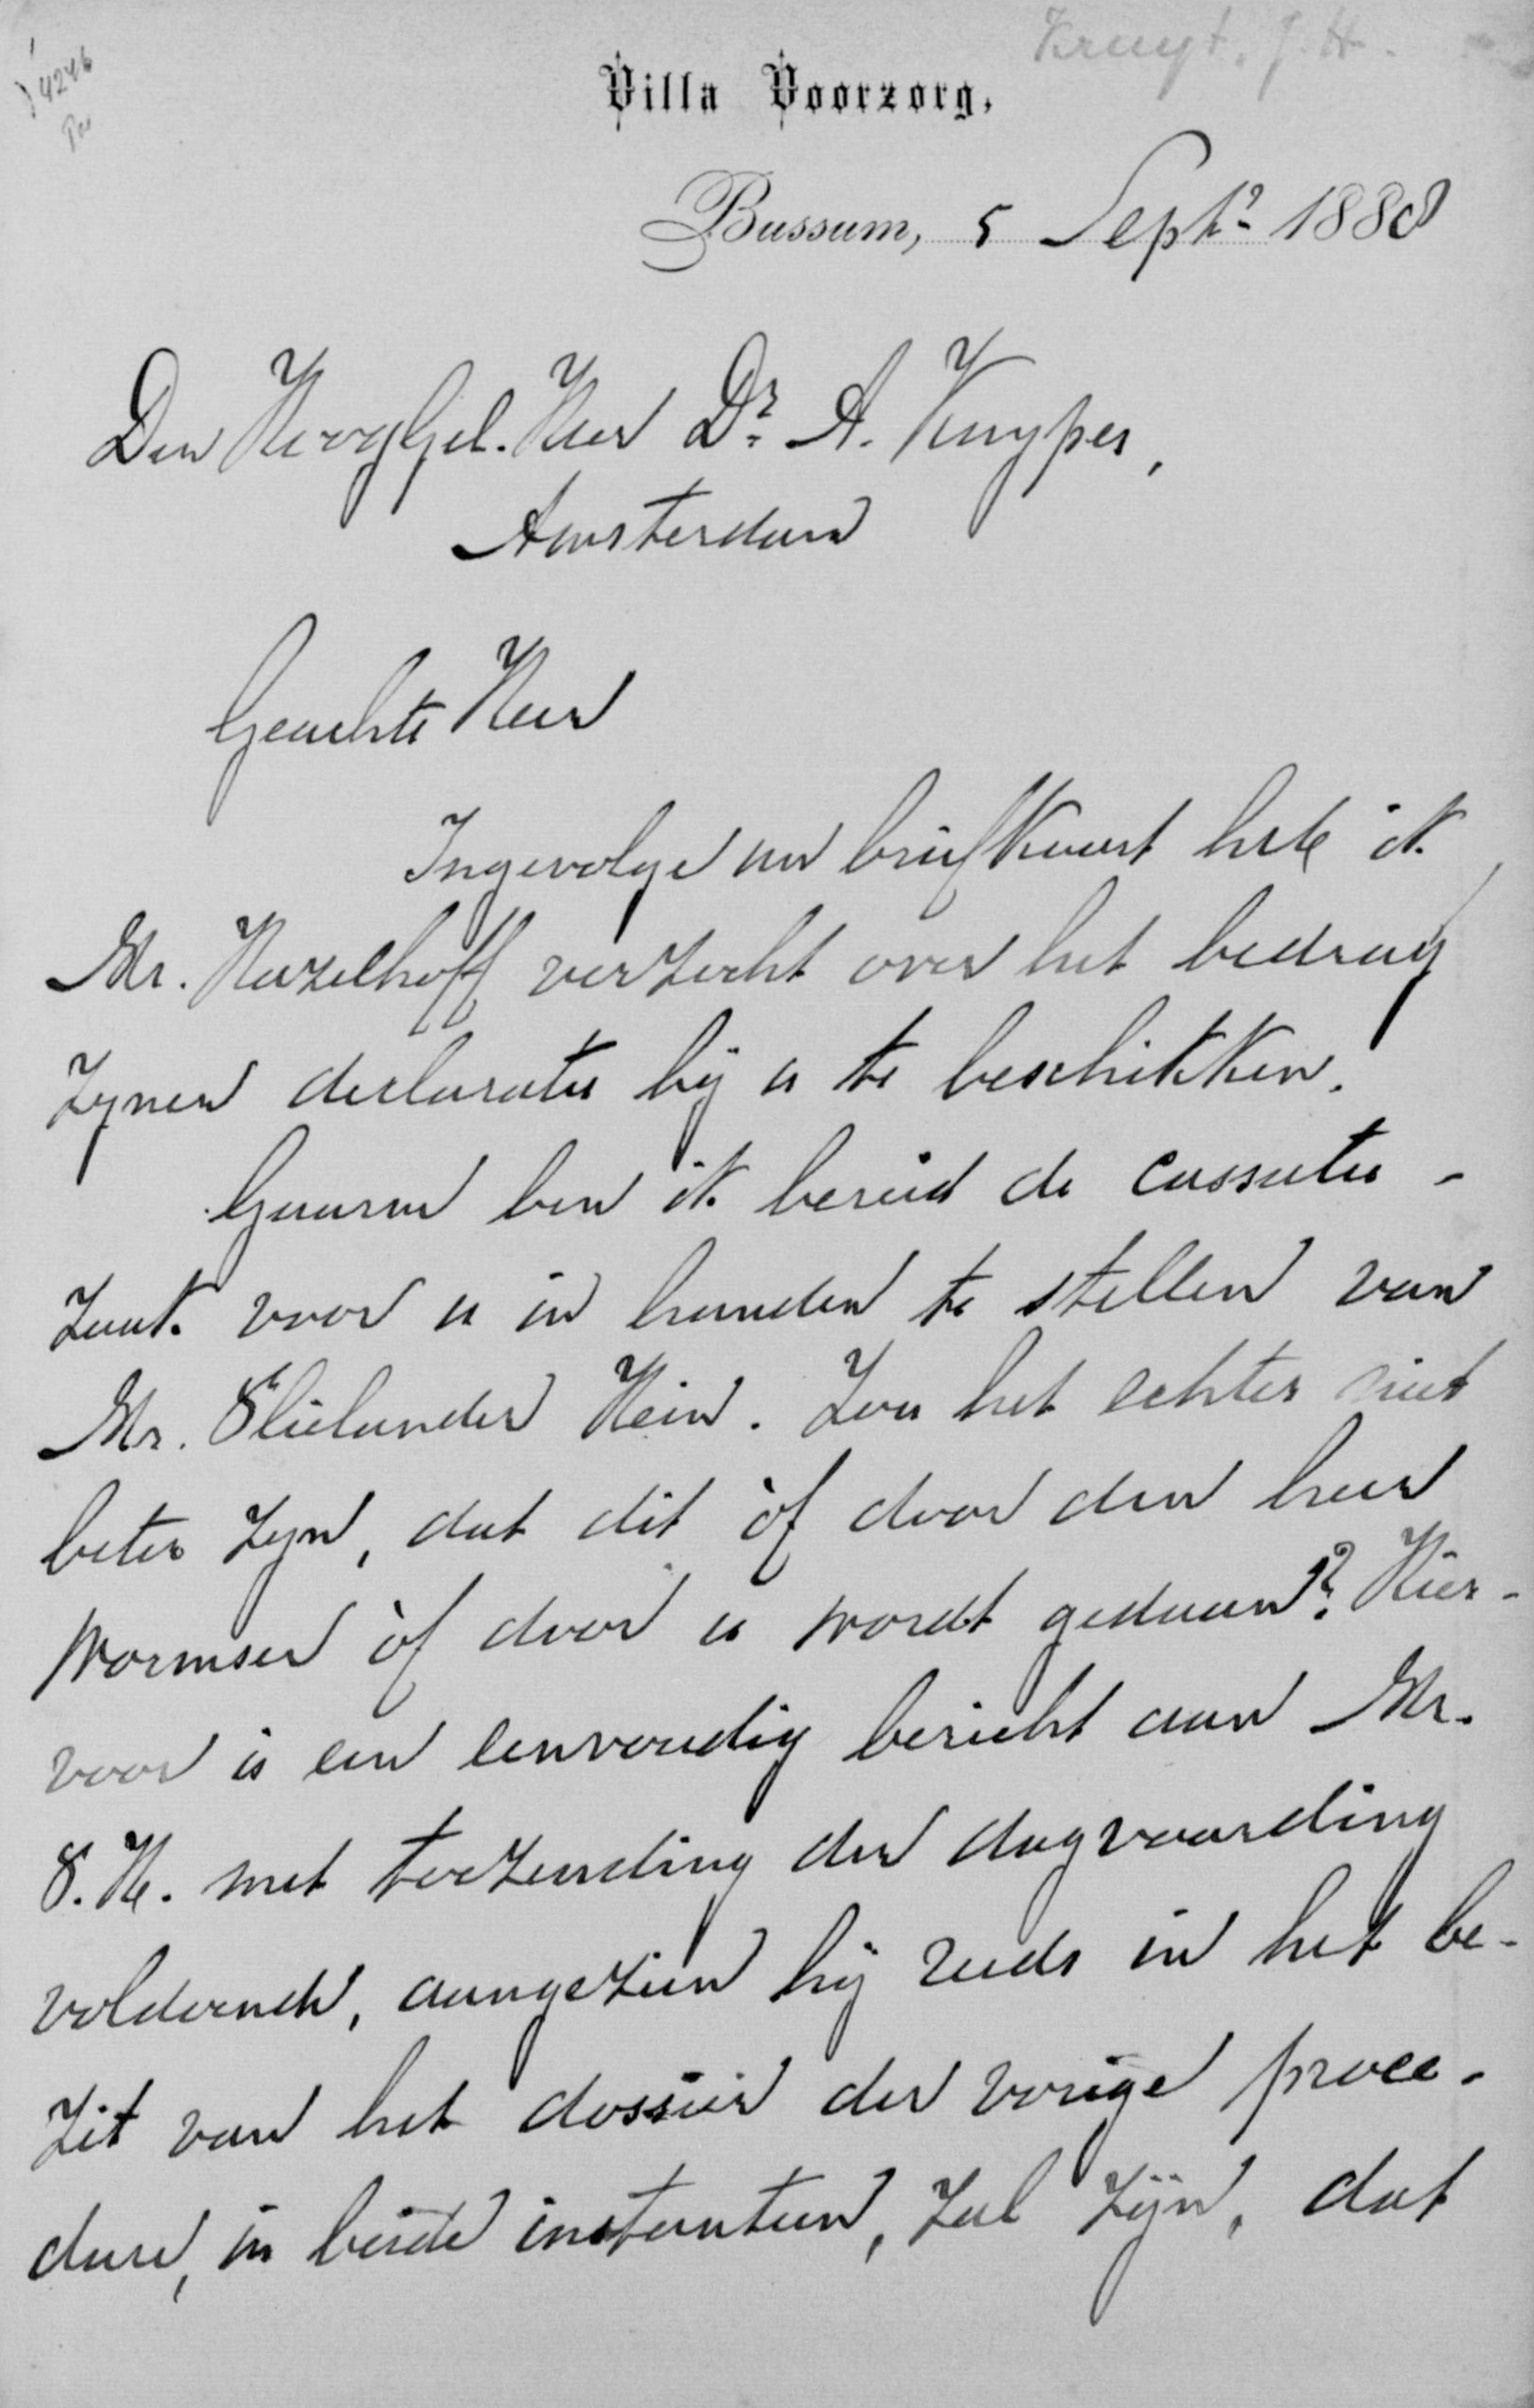 Kruyt. J. H.
4246
Villa Voorzorg,
Bussum, 5 Septr. 1888
Den HoogGel. Heer Dr. A. Kuyper,
Amsterdam
Geachte Heer
Ingevolge uw briefkaart heb ik
Mr. Hazelhoff verzocht over het bedrag
zynen declaratie bij u te beschikken.
Gaarne ben ik bereid de cassatie-
zaak voor u in handen te stellen van
Mr. Vlielander Hein. Zou het echter niet
beter zyn, dat dit òf door den heer
Wormser òf door u wordt gedaan? Hier-
voor is een eenvoudig bericht aan Mr.
V. H. met toezending der dagvaarding
voldoende, aangezien hij reeds in het be-
zit van het dossier der vorige proce-
dure, in beide instantien, zal zijn, dat